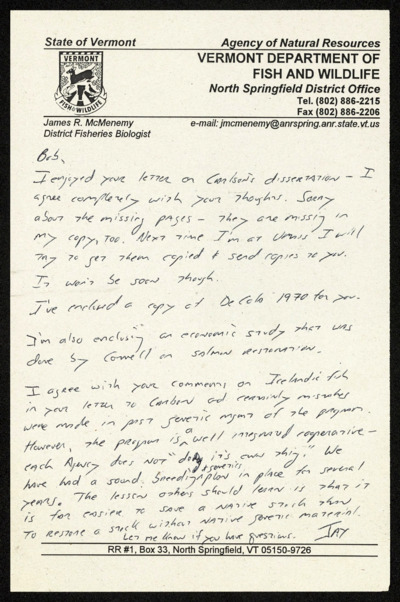 State of Vermont
Agency of Natural Resources
VERMONT DEPARTMENT OF
FISH AND WILDLIFE
North Springfield District Office
Tel. (802) 886-2215
Fax (802) 886-2206
VERMONT
FISH & WILDLIFE
James R. McMenemy
District Fisheries Biologist
e-mail: jmcmenemy@anrspring.anr.state.vt.us
Bob,
I enjoyed your letter on Carlson's dissertation - I
agree completely with your thoughts. Sorry
about the missing pages - they are missing in
my copy, too. Next time I'm at UMass I will
try to get them copied & send copies to you.
It won't be soon though.
I've enclosed a copy of DeCola 1970 for you.
I'm also enclosing an economic study that was
done by Cornell on salmon restoration.
I agree with your comments on Icelandic fish
in your letter to Carlson and certainly mistakes
were made in past genetic mgmt of the program.
However, the program is a well integrated cooperative -
each Agency does not "do it's own thing." We
have had a sound breeding/genetics plan in place for several
years. The lesson others should learn is that it
is far easier to save a native stock than
to restore a stock without native genetic material.
Let me know if you have questions. JAY
RR #1, Box 33, North Springfield, VT 05150-9726